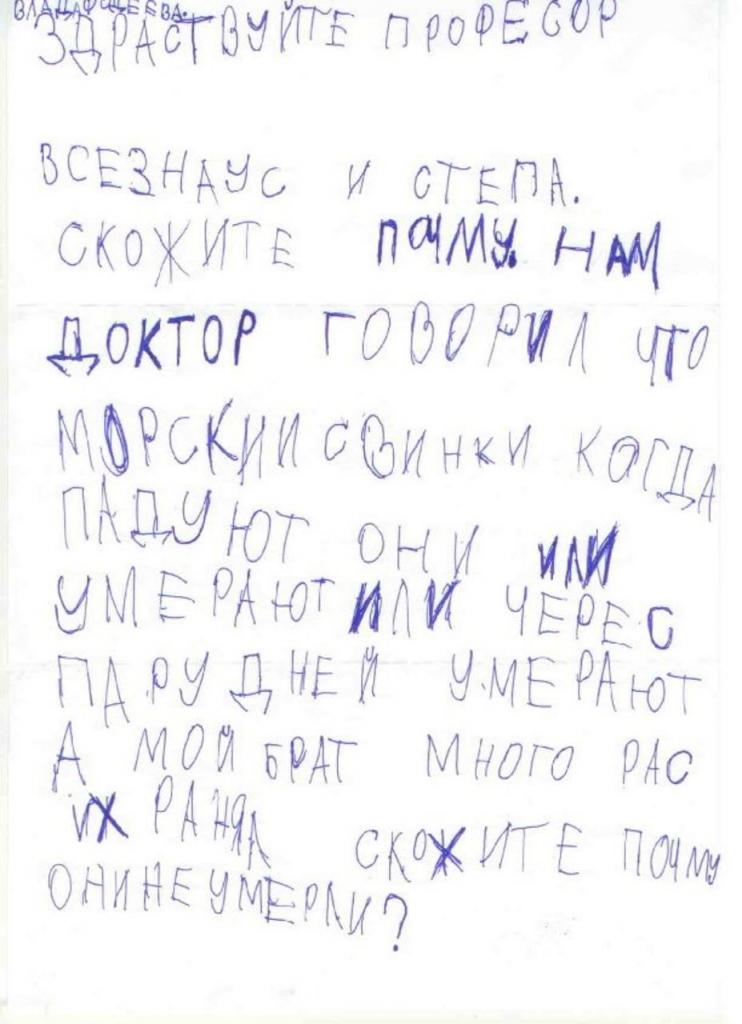 ВЛАДА
ЗДРАСТВУЙТЕ ПРОФЕСОР
ВСЕЗНАУС И СТЕПА.
СКОЖИТЕ ПОЧМУ. НАМ
ДОКТОР ГОВОРИЛ ЧТО
МОРСКИИ СВИНКИ КОГДА
ПАДУЮТ ОНИ ИЛИ
УМЕРАЮТ ИЛИ ЧЕРЕС
ПАРУ ДНЕЙ УМЕРАЮТ
А МОЙ БРАТ МНОГО РАС
ИХ РАНЯЛ СКОЖИТЕ ПОЧМУ
ОНИ НЕ УМЕРЛИ?